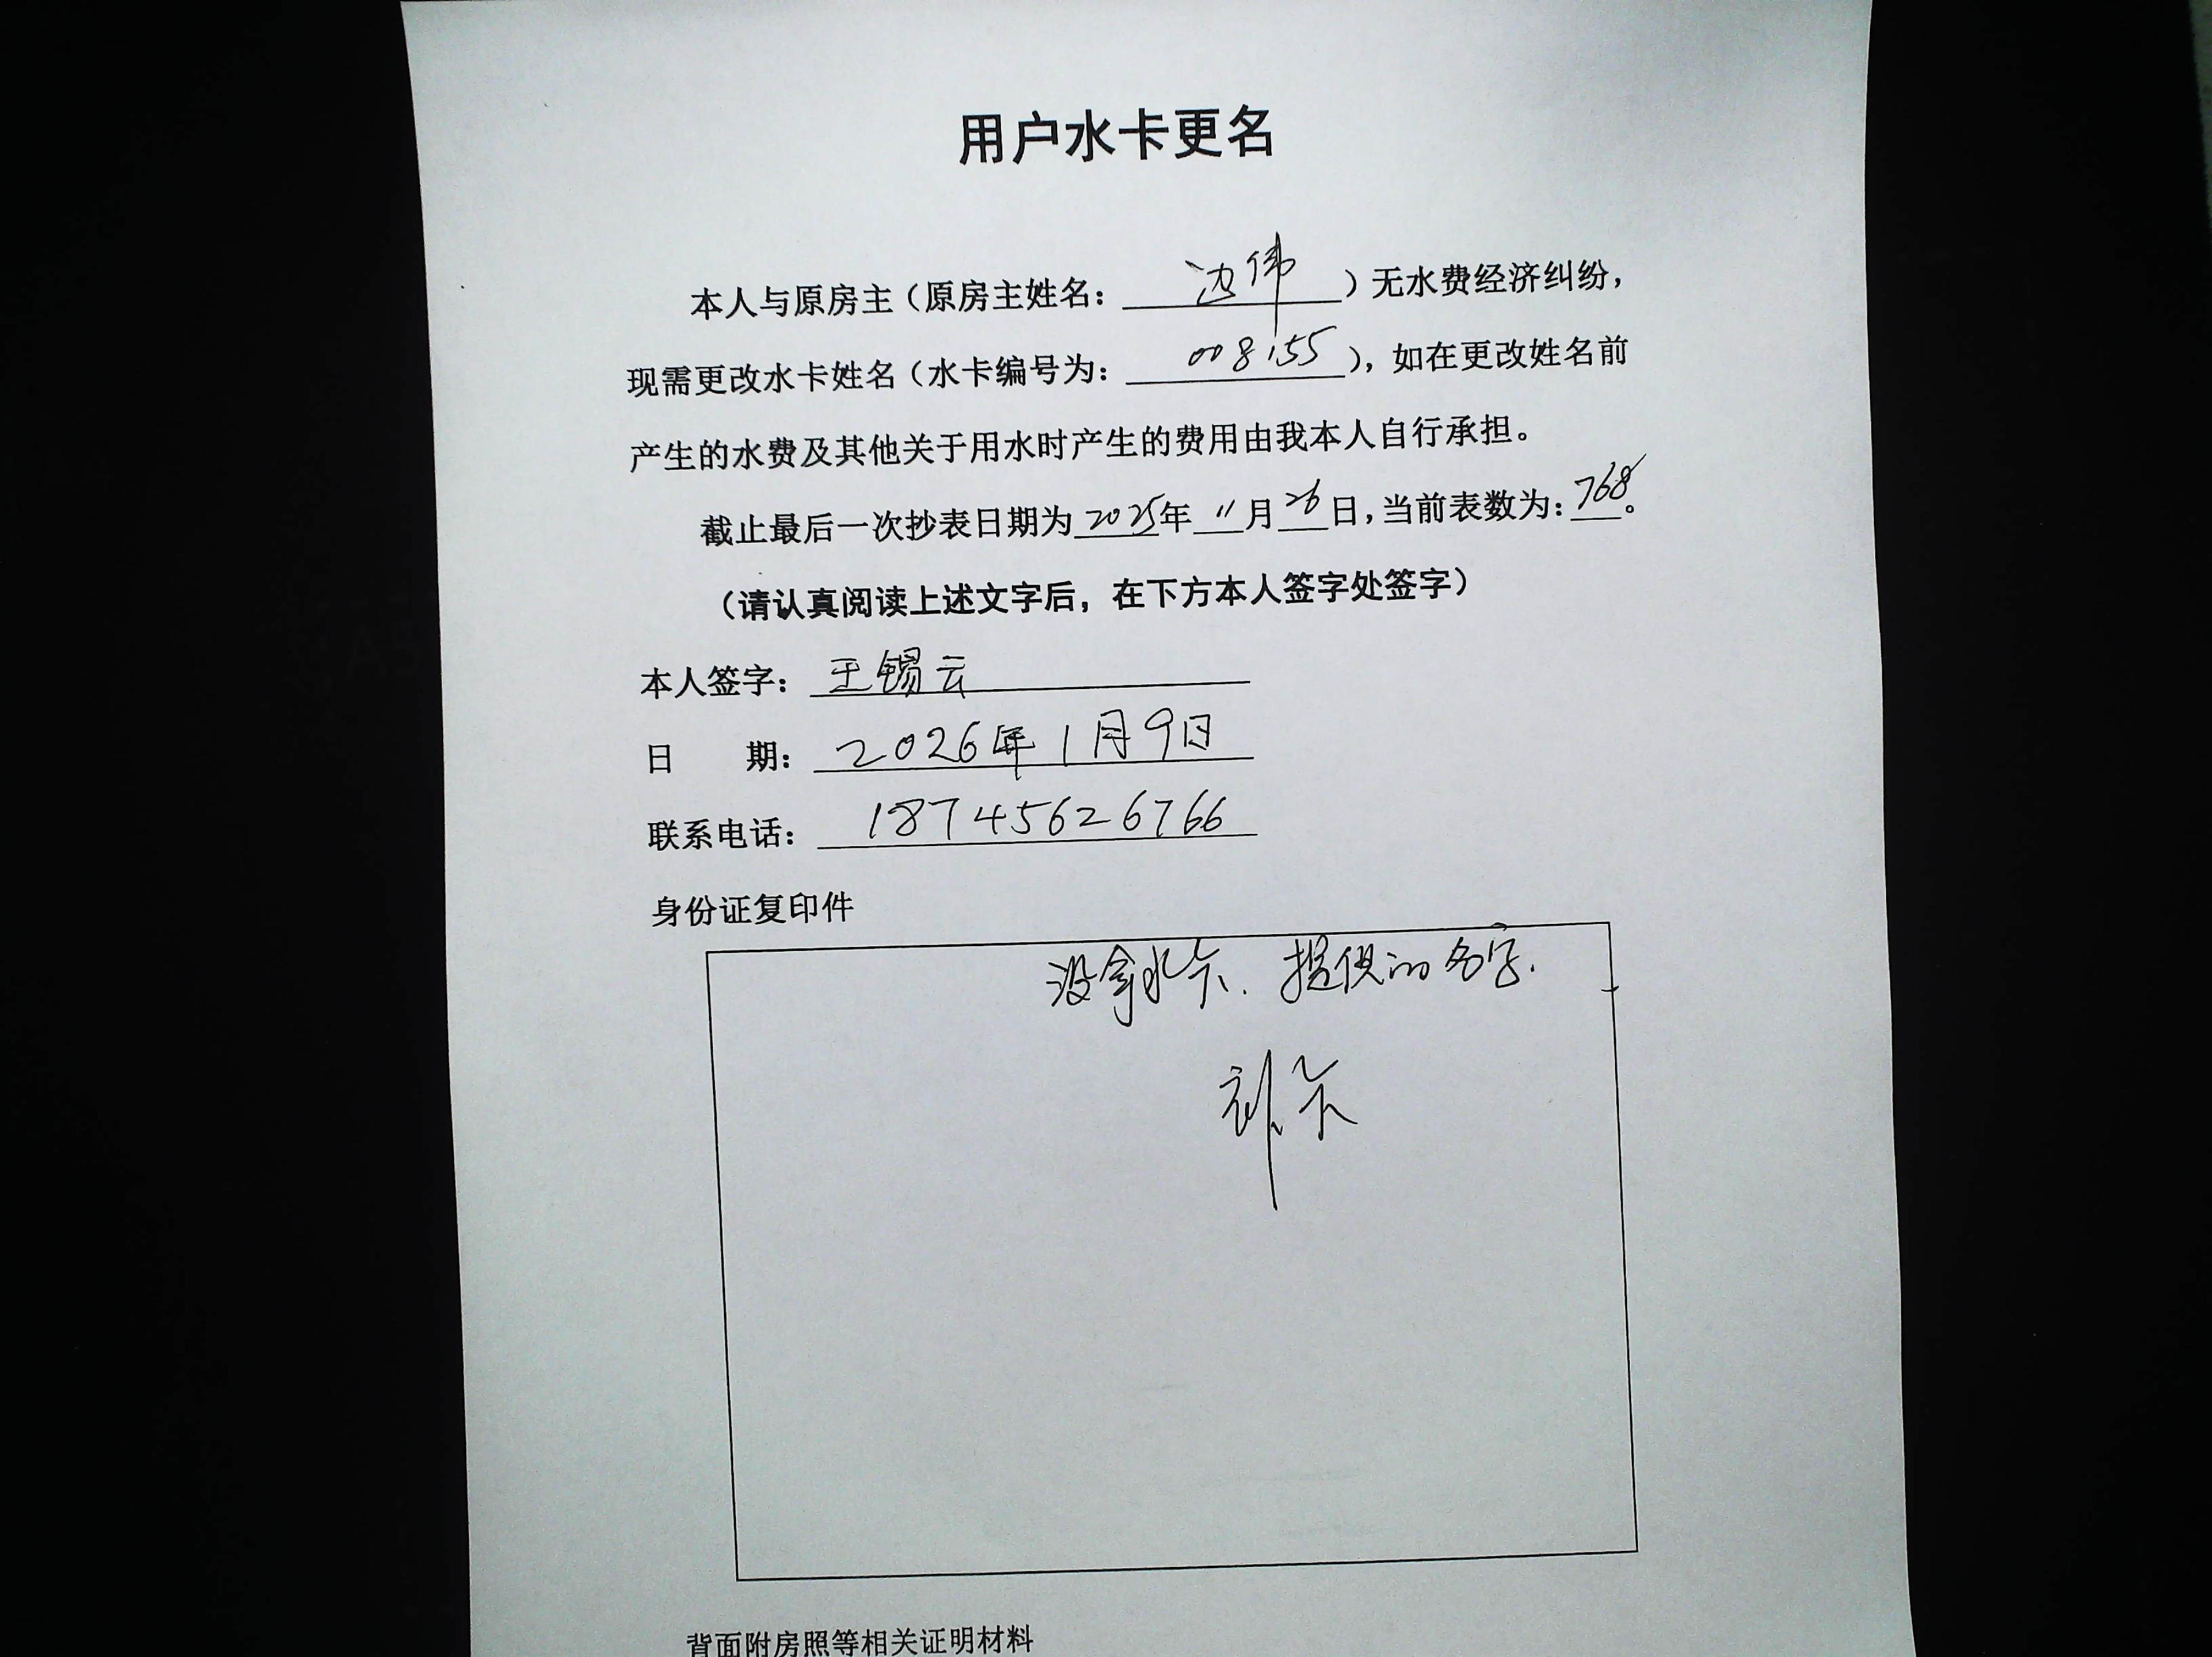 用户水卡更名
本人与原房主（原房主姓名：边伟）无水费经济纠纷，
现需更改水卡姓名（水卡编号为：008155），如在更改姓名前
产生的水费及其他关于用水时产生的费用由我本人自行承担。
截止最后一次抄表日期为2025年11月26日，当前表数为：768。
（请认真阅读上述文字后，在下方本人签字处签字）
本人签字：王锡云
日 期：2026年1月9日
联系电话：18745626766
身份证复印件
没拿水卡．提供的名字．
补卡
背面附房照等相关证明材料